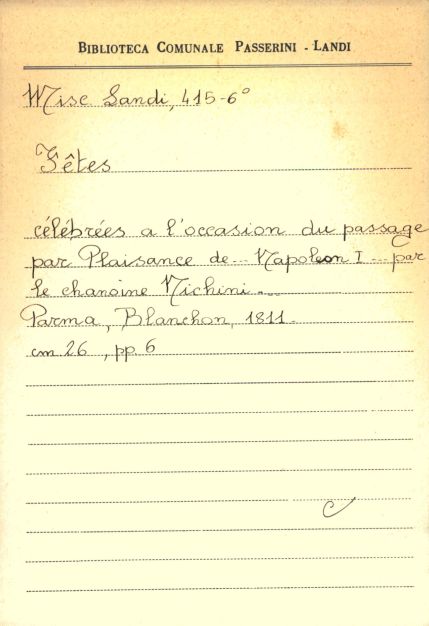 BIBLIOTECA COMUNALE PASSERINI - LANDI
Misc Landi, 415-6°
Fêtes
célébrées a l'occasion du passage
par Plaisance de... Napoleon I... par
le chanoine Nichini....
Parma, Blanchon, 1811.
cm 26, pp. 6
C